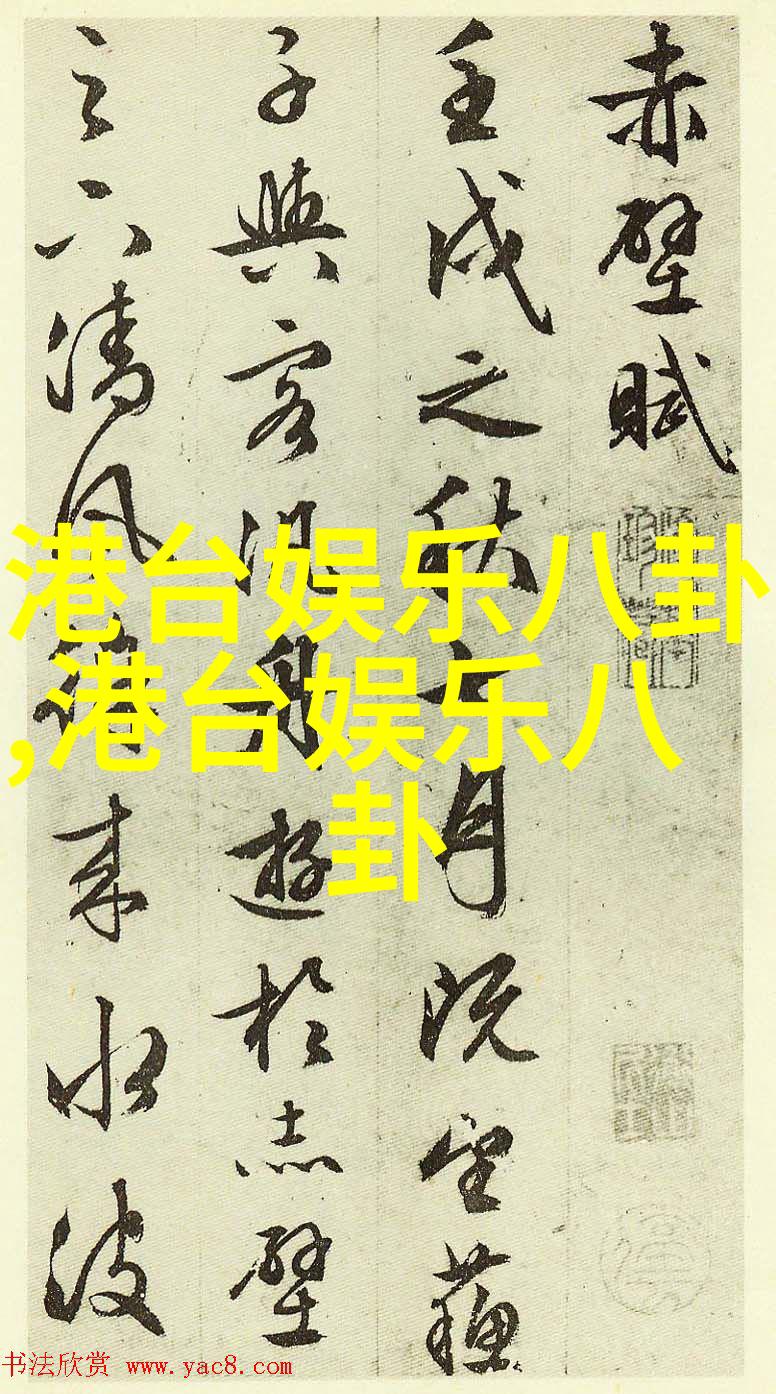 赤壁賦
壬戌之秋七月既望蘇
子與客泛舟遊於赤壁
之下清風徐來水波
港台娱乐八卦
,港台娱乐八
卦
书法欣赏 www.yac8.com